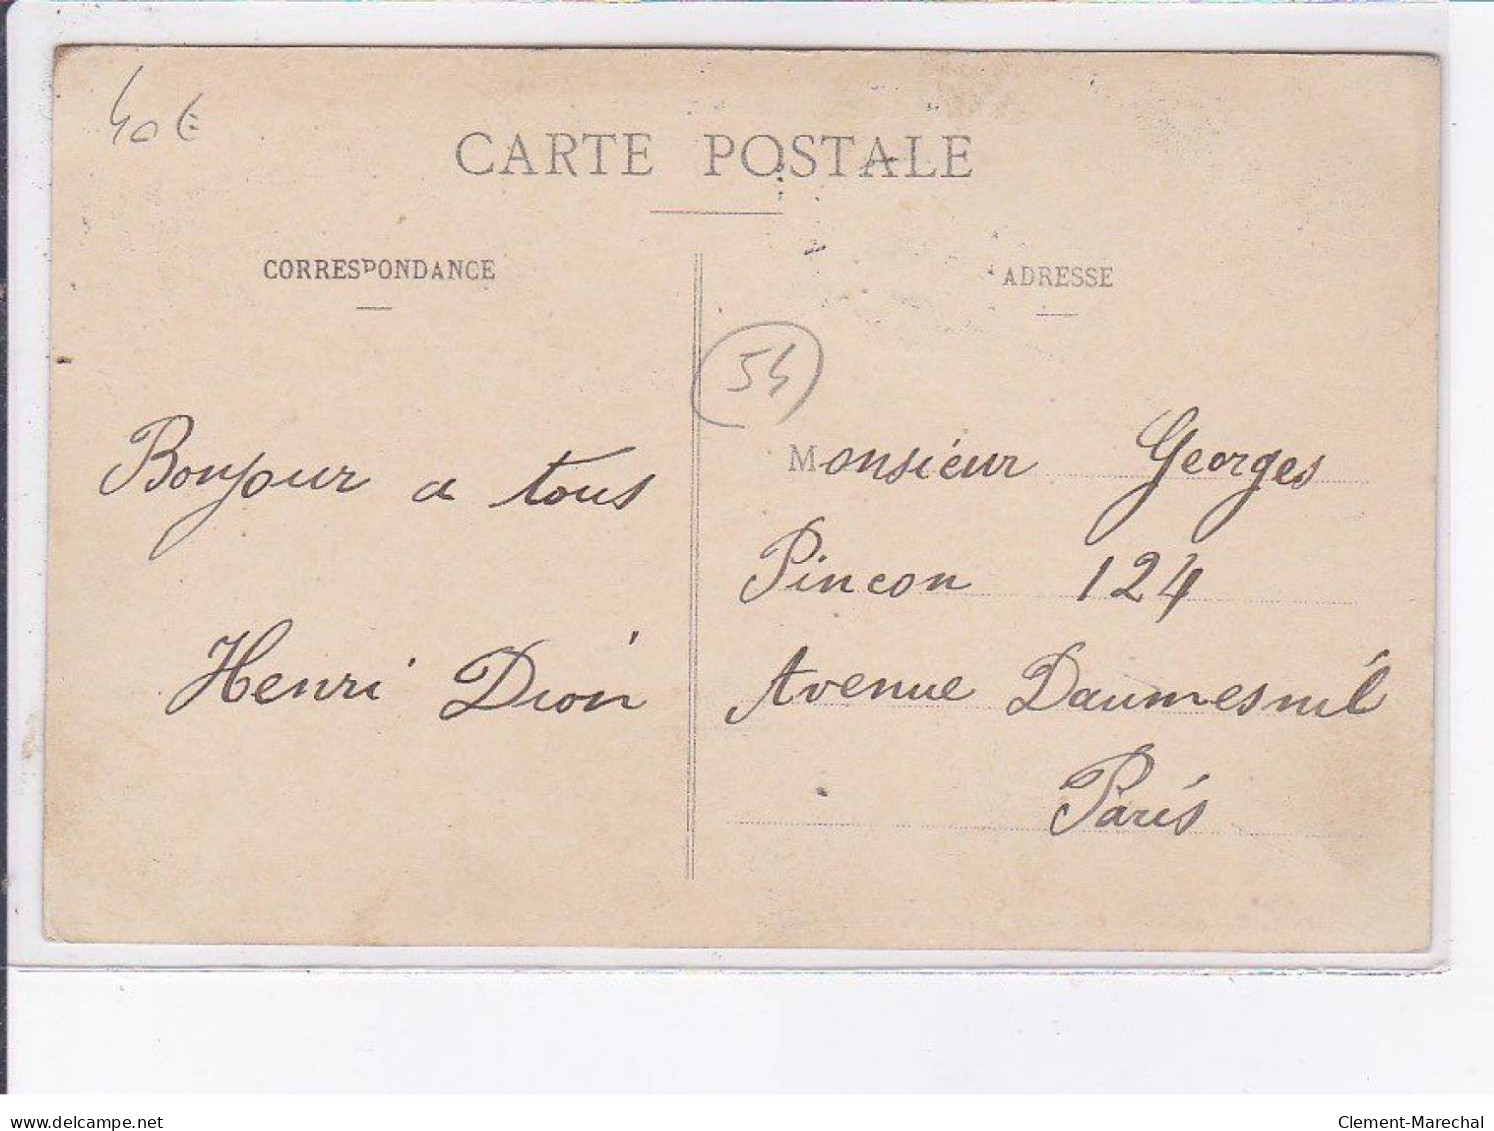 40€
CARTE POSTALE
CORRESPONDANCE
ADRESSE
54
Bonjour a tous
Henri Dion
Monsieur Georges
Pincon 124
Avenue Daumesnil
Paris
www.delcampe.net
Clement-Marechal